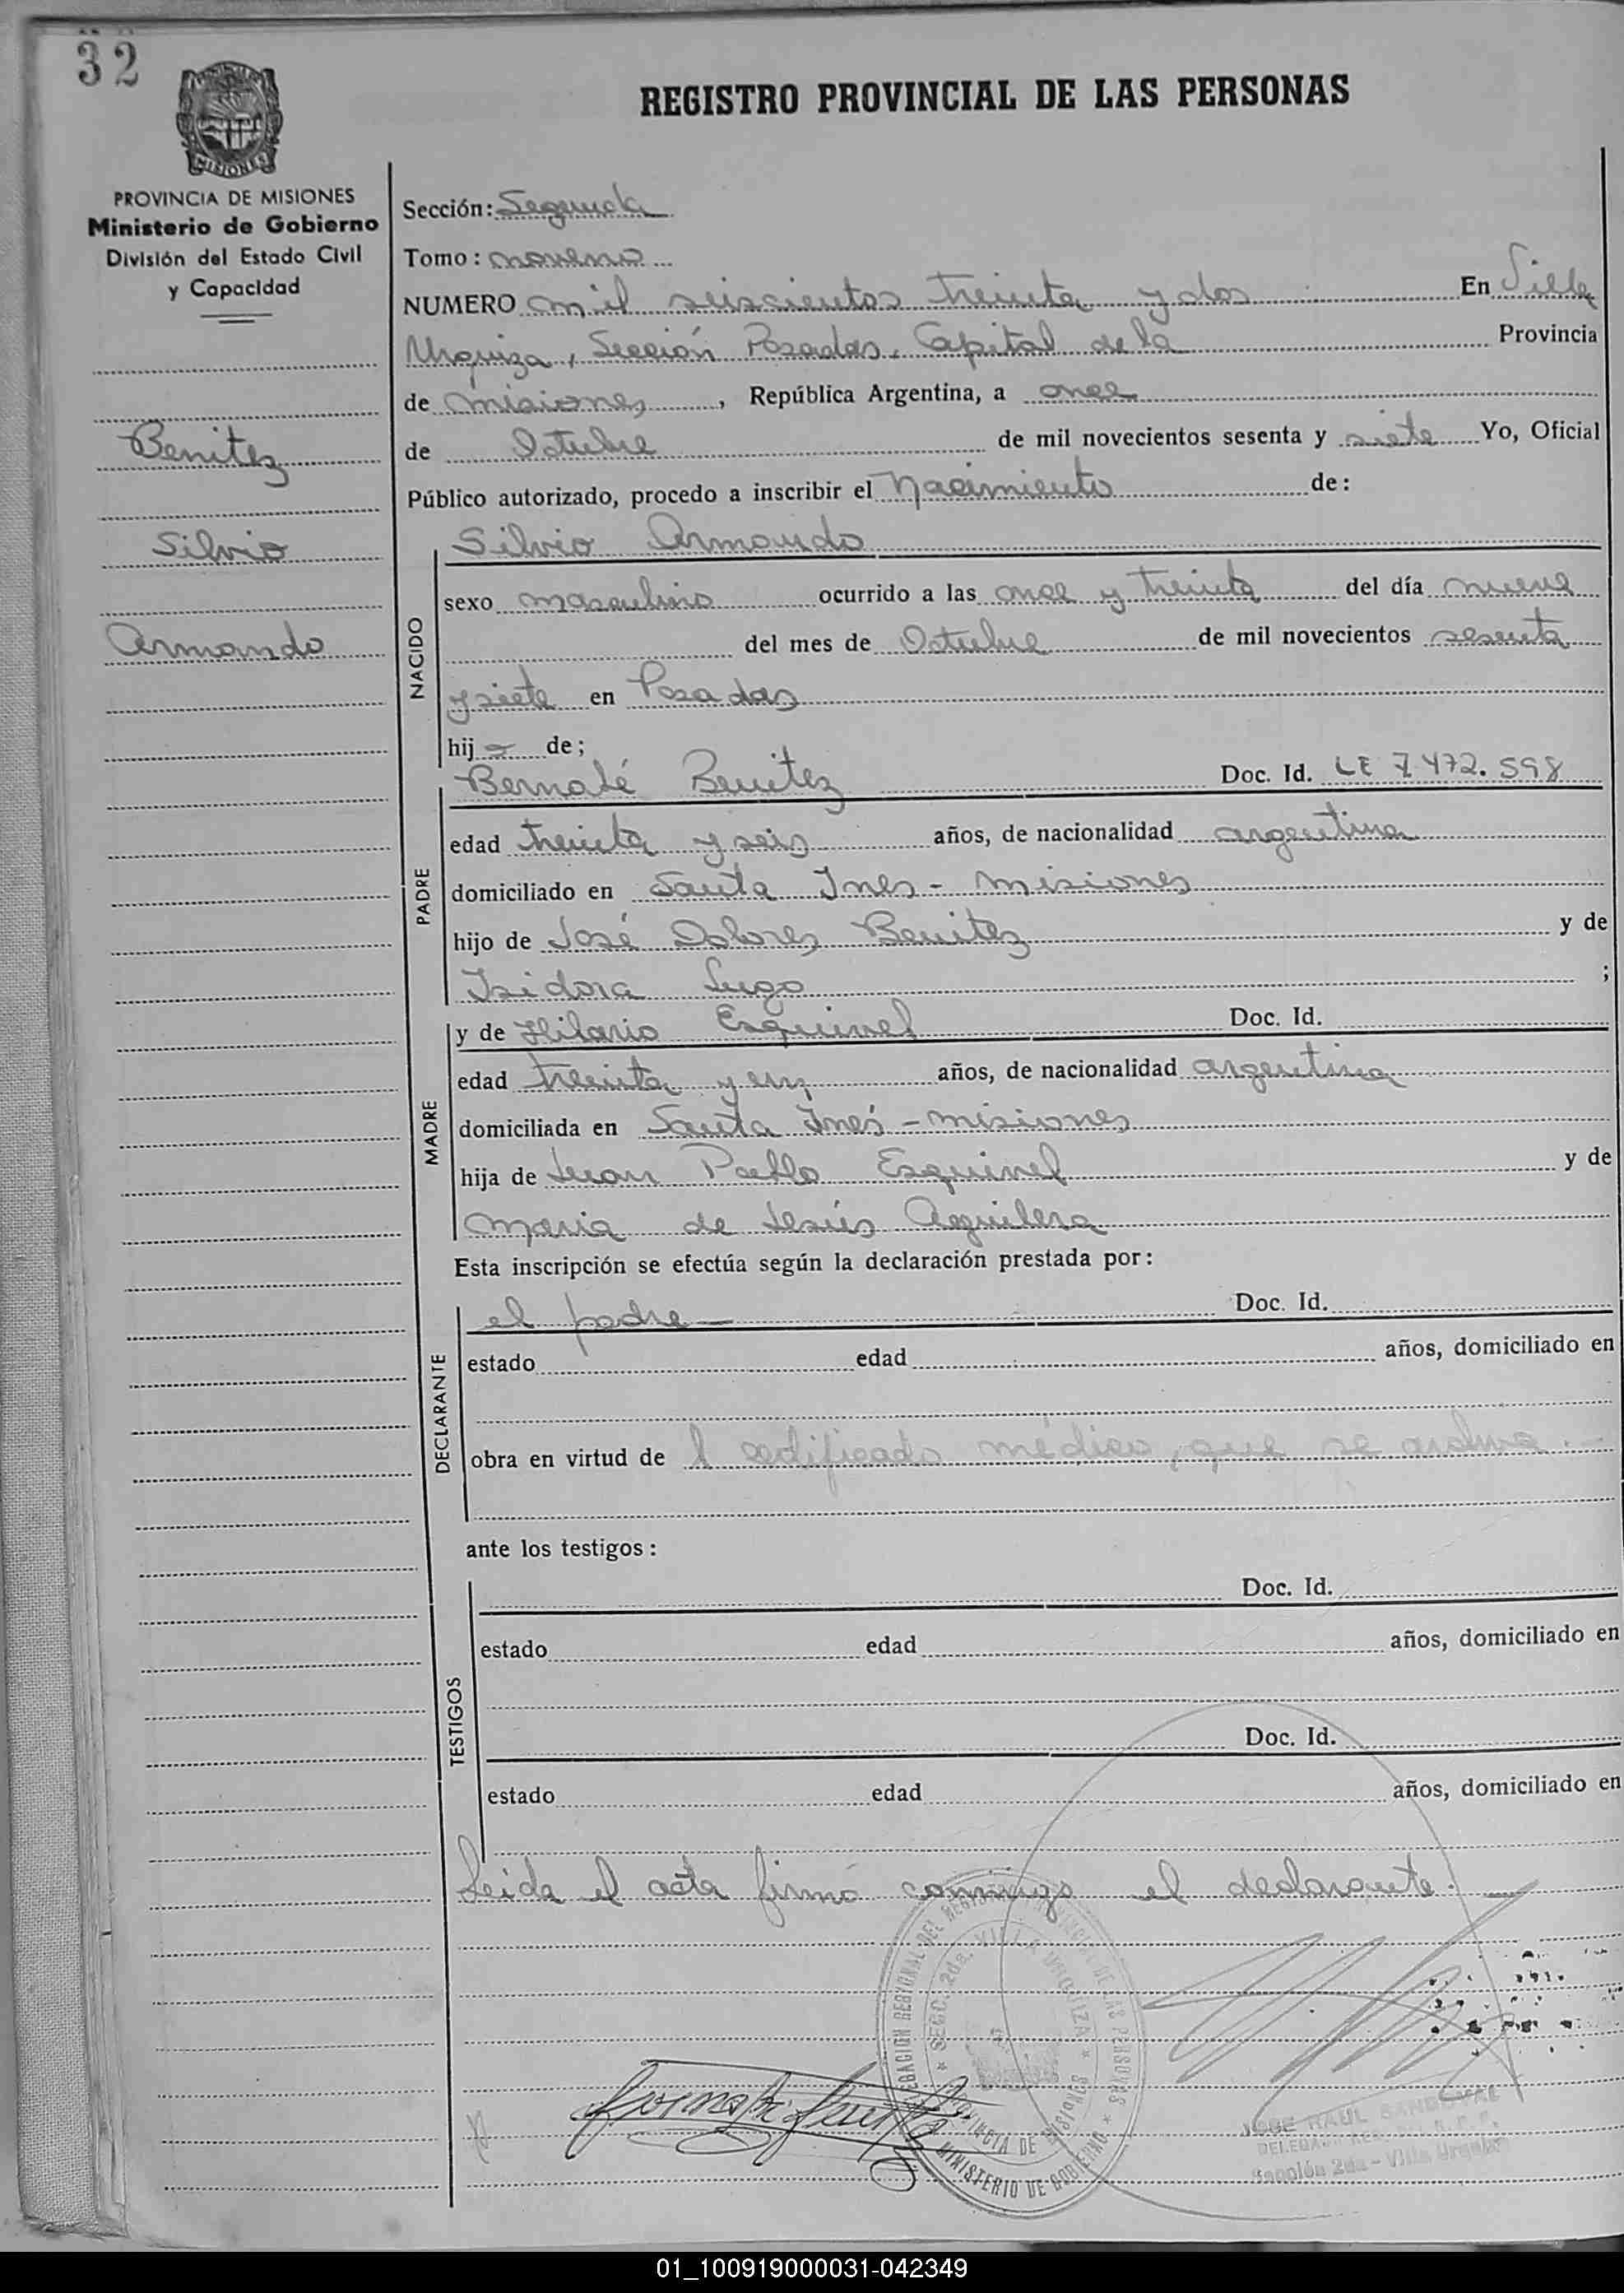 32
MISIONES
REGISTRO PROVINCIAL DE LAS PERSONAS
PROVINCIA DE MISIONES
Ministerio de Gobierno
División del Estado Civil
y Capacidad
Benitez
Silvio
Armando
Sección: Segunda
Tomo: noveno
NUMERO mil seiscientos treinta y dos En Villa
Urquiza, Sección Posadas, Capital de la Provincia
de misiones, República Argentina, a once
de Octubre de mil novecientos sesenta y siete Yo, Oficial
Público autorizado, procedo a inscribir el Nacimiento de:
Silvio Armando
NACIDO
sexo masculino ocurrido a las once y treinta del día nueve
del mes de Octubre de mil novecientos sesenta
y siete en Posadas
hijo de;
PADRE
Bernabé Benitez Doc. Id. LE 7.472.598
edad treinta y seis años, de nacionalidad argentina
domiciliado en Santa Ines - misiones
hijo de José Dolores Benitez y de
Isidora Lugo ;
MADRE
y de Hilaria Esquivel Doc. Id.
edad treinta y un años, de nacionalidad argentina
domiciliada en Santa Inés - misiones
hija de Juan Pablo Esquivel y de
Maria de Jesús Aguilera
Esta inscripción se efectúa según la declaración prestada por:
DECLARANTE
el padre — Doc. Id.
estado edad años, domiciliado en
obra en virtud de l certificado médico, que se archiva.-
ante los testigos:
TESTIGOS
Doc. Id.
estado edad años, domiciliado en
Doc. Id.
estado edad años, domiciliado en
Leida el acta firmó conmigo el declarante.
DELEGACION REGIONAL DEL REGISTRO PROVINCIAL DE LAS PERSONAS
* SECC. 2da. VILLA URQUIZA *
PROVINCIA DE MISIONES
MINISTERIO DE GOBIERNO *
JOSE RAUL SANDOVAL
Sección 2da - Villa Urquiza
01_100919000031-042349